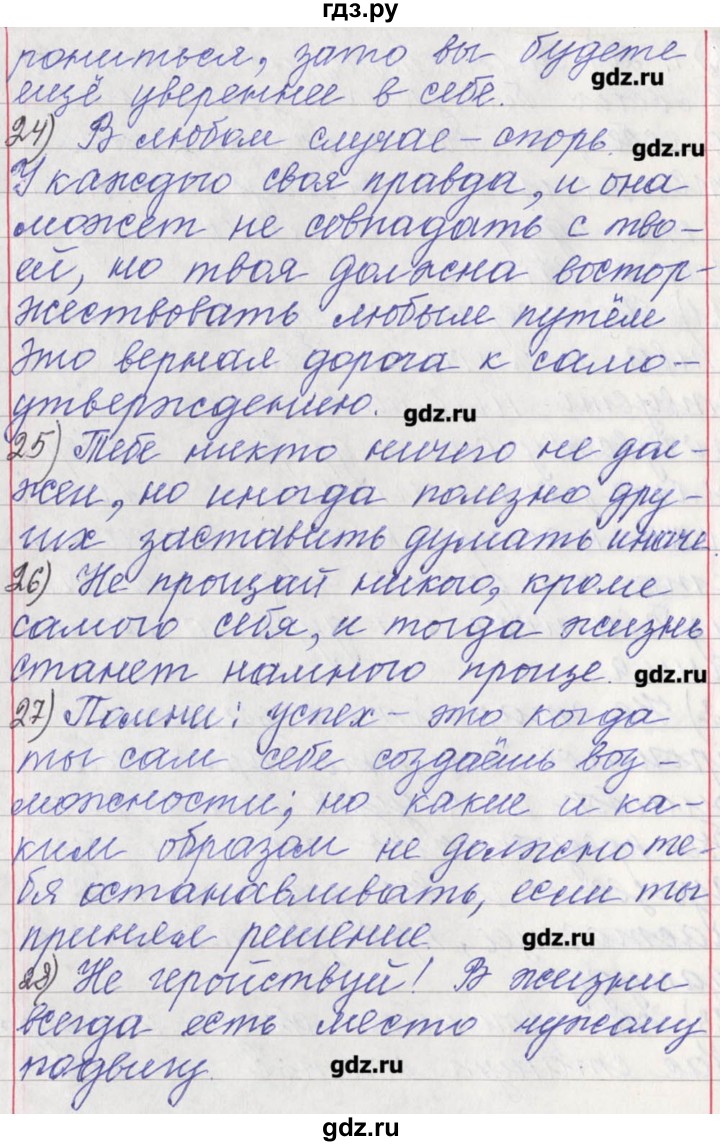 гдз.ру
рониться, зато вы будете
gdz.ru
ещё увереннее в себе.
24) В любом случае - спорь.
gdz.ru
У каждого своя правда, и она
может не совпадать с тво-
ей, но твоя должна востор-
жествовать любым путём
это верная дорога к само-
утверждению.
gdz.ru
25) Тебе никто ничего не дол-
жен, но иногда полезно дру-
гих заставить думать иначе.
26) Не прощай никого, кроме
самого себя, и тогда жизнь
станет намного проще.
gdz.ru
27) Помни: успех - это когда
ты сам себе создаёшь воз-
можности; но какие и ка-
ким образом не должно те-
бя останавливать, если ты
принял решение.
gdz.ru
28) Не геройствуй! В жизни
всегда есть место чужому
подвигу.
gdz.ru
gdz.ru